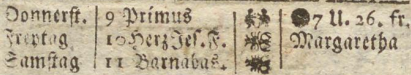 Donnerst. 9 Primus 7 U. 26. fr.
Freytag 10 Herz Jes. F. Margaretha
Samstag 11 Barnabas.